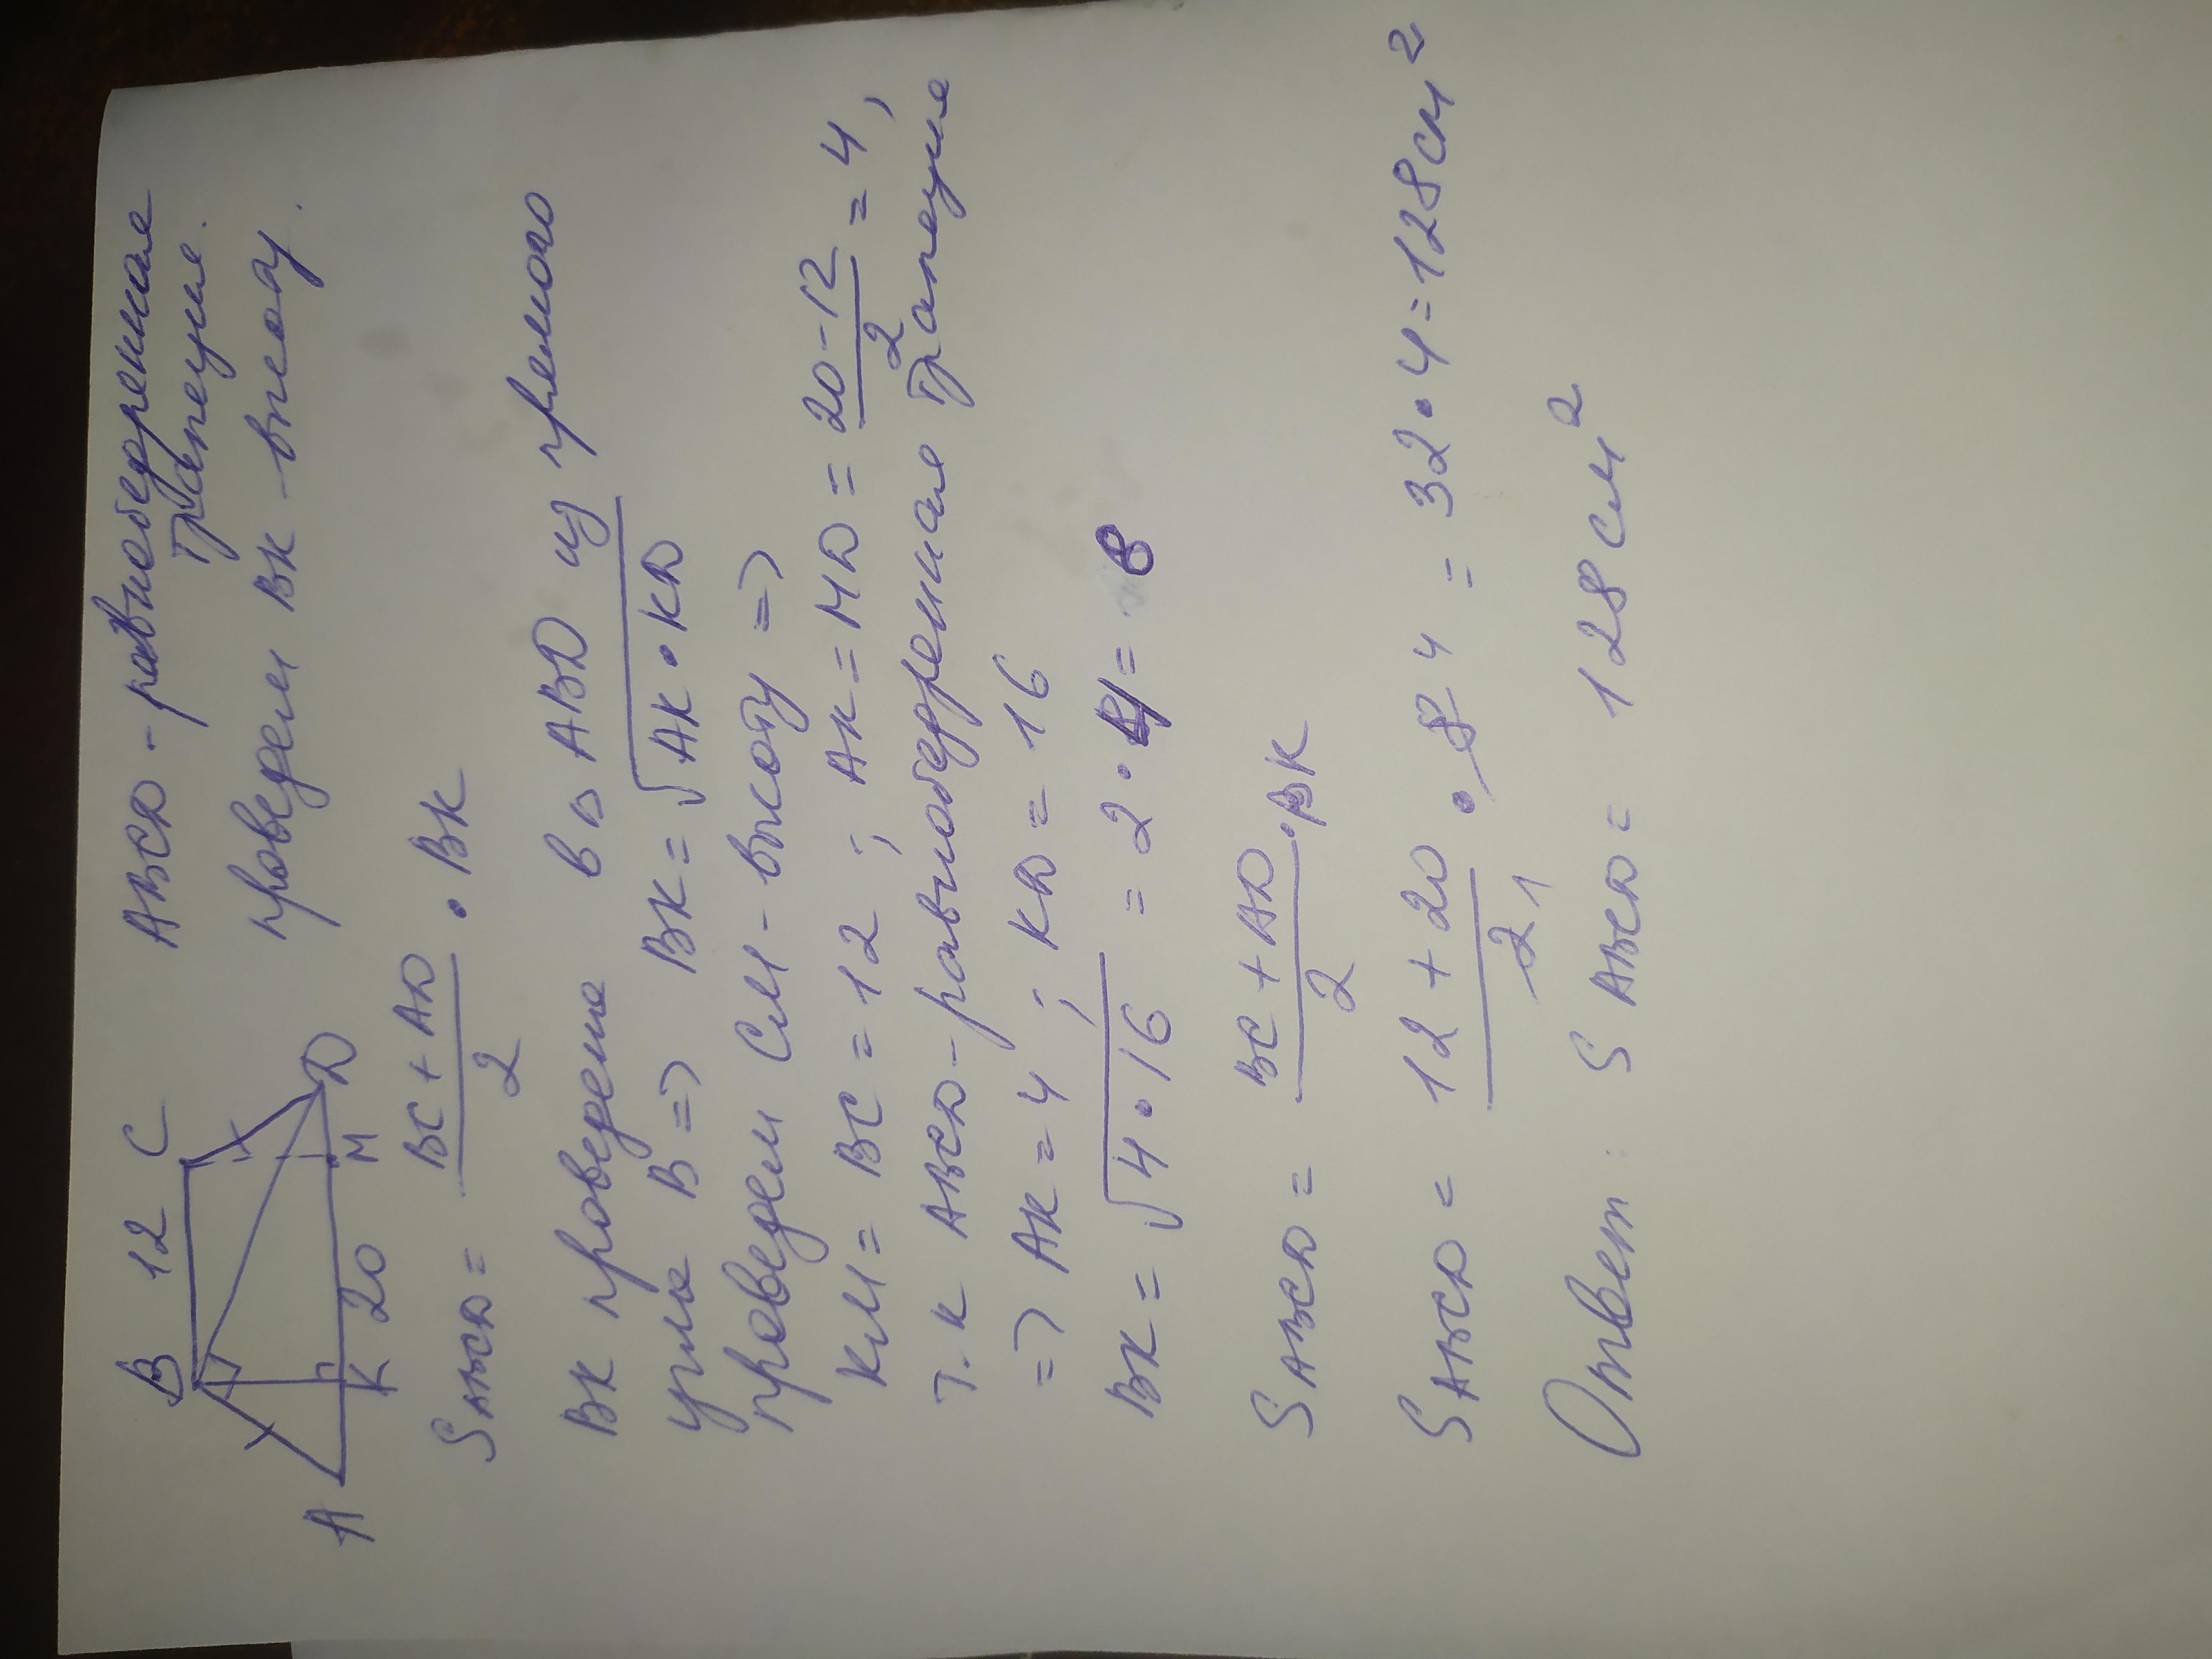 B 12 C
A K 20 M D
ABCD - равнобедренная
трапеция.
проведем BK - высоту.
S ABCD = BC + AD / 2 • BK
BK проведена в △ ABD из прямого
угла B => BK = √AK • KD
проведем CM - высоту =>
KM = BC = 12 ; AK = MD = 20 - 12 / 2 = 4,
т.к ABCD - равнобедренная трапеция
=> AK = 4 ; KD = 16
BK = √4 • 16 = 2 • 4 = 8
S ABCD = BC + AD / 2 • BK
S ABCD = 12 + 20 / 2 1 • 8 4 = 32 • 4 = 128 см²
Ответ : S ABCD = 128 см²